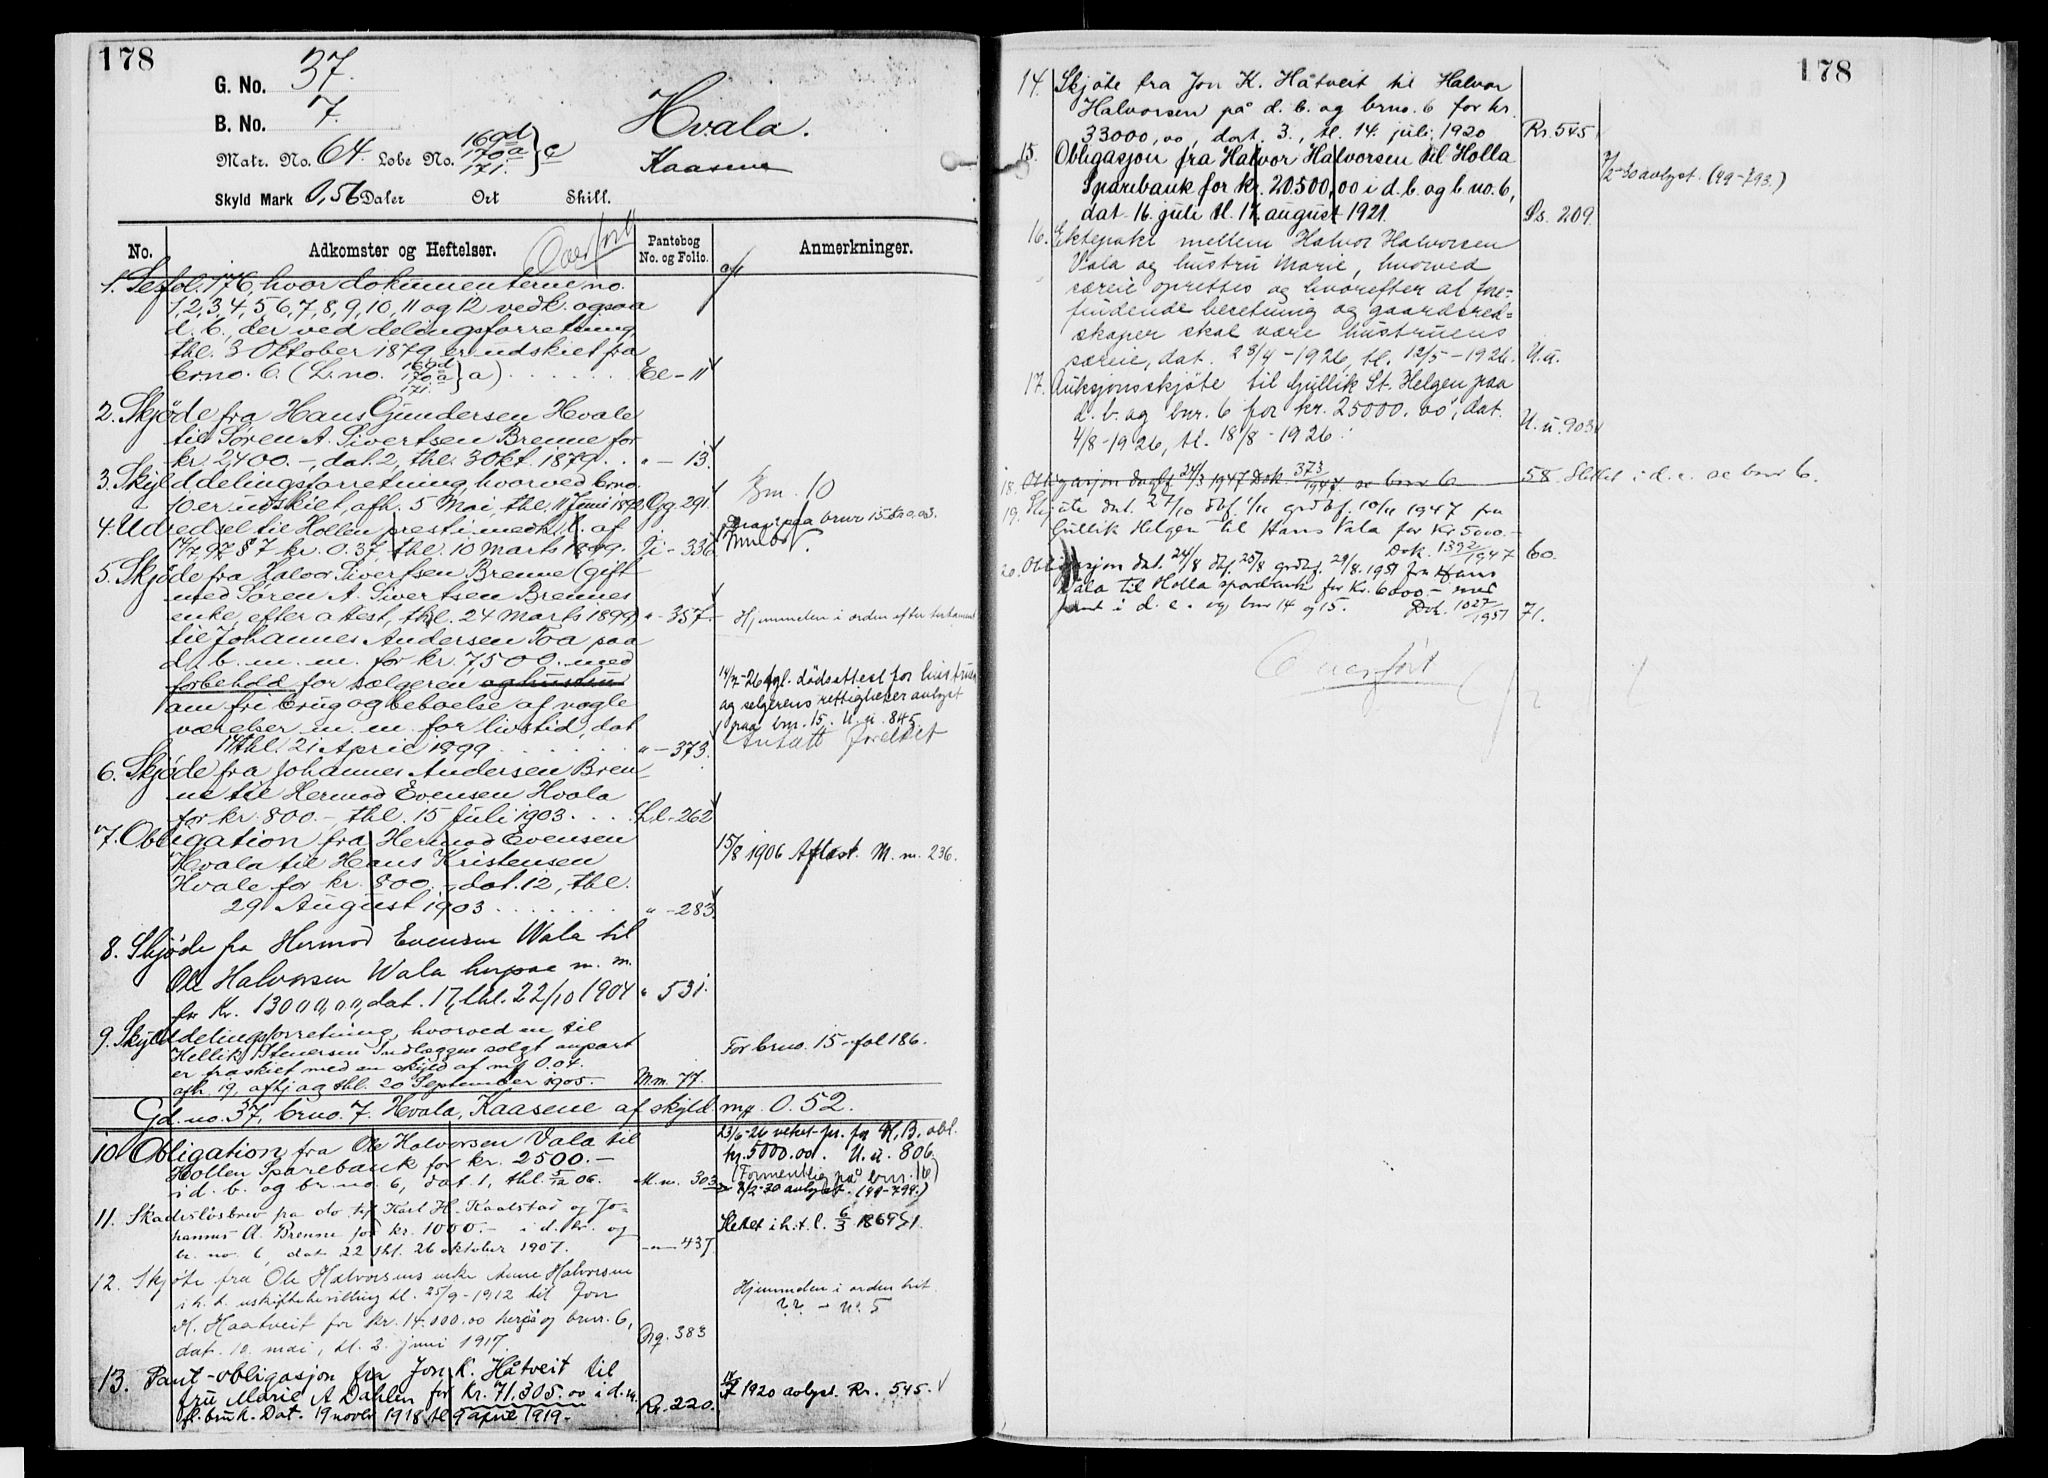 178
G. No. 37.
B. No. 7.
Matr. No. 64. Løbe No. 169d 170a 171. } c
Skyld Mark 0,56 Daler Ort Skill.
Hvala.
Kaasene
No. Adkomster og Heftelser. Overført Pantebog No. og Folio. Anmerkninger.
1. Se fol. 176, hvor dokumenterne no.
1, 2, 3, 4, 5, 6, 7, 8, 9, 10, 11 og 12 vedk. ogsaa
d. b., der ved delingsforretning
thl. 3 Oktober 1879 er udskiet fra
brno. 6. (L. no. 169d 170a 171. } a) . . . . . Ee - 11
2. Skjøde fra Hans Gundersen Hvale
til Søren A. Sivertsen Brenne for
kr. 2400.-, dat. 2, thl. 3 Okt. 1879 . . " - 13.
3. Skylddelingsforretning hvorved brno.
10 er udskiet, afh. 5 Mai, thl. 11 Juni 1892 Gg 291. Brn. 10
4. Udredsel til Hollen presti medh. l. af
14/7 92 § 7 kr. 0.37 thl. 10 Marts 1899. Ji - 336
5. Skjøde fra Halvor Sivertsen Brenne (gift
med Søren A. Sivertsen Brennes
enke, efter atest, thl. 24 Marts 1899) " - 357. Hjemmelen i orden efter testament
til Johannes Andersen Toa paa
d. b. m. m. for kr. 7500.- med
forbehold for sælgeren og hustru
om fri brug og beboelse af nogle
værelser m. m. for livstid, dat
14 thl. 21 April 1899 . . . . . " - 373.
14/7-26 tgl. dødsattest for hustruen
og selgerens rettigheter avlyst
paa bnr. 15. U. u. 845
6. Skjøde fra Johannes Andersen Bren-
ne til Hermod Evensen Hvala
for kr. 800.- thl. 15 Juli 1903 . . . Ll - 262
7. Obligation fra Hermod Evensen
Hvala til Hans Kristensen
Hvale for kr. 800.-, dat. 12, thl.
29 August 1903 . . . . . . " - 283.
15/8 1906 Aflæst. M. m. 236.
8. Skjøde fra Hermod Evensen Wala til
Ole Halvorsen Wala herpaa m. m.
for Kr. 13000,00, dat. 17, thl. 22/10 1904 " 531.
9. Skylddelingsforretning, hvorved en til
Kellik Stenersen Indlæggen solgt anpart
er fraskiet med en skyld af mk 0.04.
afh. 19, afhj og thl. 20 September 1905. - M.m. 77. For brno. 15 - fol 186.
Gd. no. 37, brno. 7. Hvala, Kaasene af skyld mk. 0.52.
10. Obligation fra Ole Halvorsen Vala til
Hollen Sparebank for kr. 2500.-
i d. b. og br. no. 6, dat 1, thl. 5/12 06. M. m. 303
23/6-26 veket pr. for H. B. obl.
kr. 5000.00. U. u. 806
(Formentlig på bnr. 16)
7/2-30 avlyst. (49-794.)
11. Skadesløsbrev fra do. til Karl H. Kaalstad og Jo-
hannes A. Brenne for kr. 1000.- i d. br. og
br. no. 6, dat 22 thl. 26 oktober 1907. -"- 437.
Slettet i h. t. l. 6/3 1869 § 1.
12. Skjøte fra Ole Halvorsens enke Anne Halvorsen
i h. t. uskiftebevilling tl. 25/9-1912 til Jon
K. Haatveit for kr. 14.000.00 herpå og brnr. 6,
dat. 10. mai, tl. 2. juni 1917. Qq. 383
Hjemmelen i orden hit.
13. Pant-obligasjon fra Jon K. Håtveit til
fru Marie A Dahlen for kr. 71.305.00 i d. m.
fl. bruk. Dat. 19 novbr 1918 tl 9 april 1919.- Rr. 220.
1920 avlyst. Rr. 545.
178
14. Skjøte fra Jon K. Håtveit til Halvor
Halvorsen på d. b. og brno. 6 for kr.
33000,00, dat. 3., tl. 14. juli 1920 Rr. 545
15. Obligasjon fra Halvor Halvorsen til Holla
Sparebank for kr. 20.500,00 i d. b. og b. no. 6,
dat 16. juli tl. 17. august 1921. Ss. 209.
7/2-30 avlyst. (49-793.)
16. Ektepakt mellem Halvor Halvorsen
Vala og hustru Marie, hvorved
særeie oprettes og hvorefter al fore-
findende besetning og gaardsred-
skaper skal være hustruens
særeie, dat. 28/4-1926, tl. 12/5-1926. U. u.
17. Auksjonsskjøte til Gullik St. Helgen paa
d. b. og bnr. 6 for kr. 25000.00, dat.
4/8-1926, tl. 18/8-1926. U. u. 903
18. Obligasjon dagbf 24/3 1947 Dok 373/1947 se bnr 6 58. Slettet i d. e. se bnr 6.
19. Skjøte dat. 27/10 dbf. 1/11 grdbf. 10/11 1947 fra
Gullik Helgen til Hans Vala for kr 5000.-
Dok. 1392/1947 60.
20. Obligasjon dat. 24/8 dbf. 25/8 grdbf. 29/8 1951 fra Hans
Vala til Holla sparebank for kr. 6000.- med
pant i d. e. og bnr 14 og 15. Dok. 1027/1951 71.
Overført